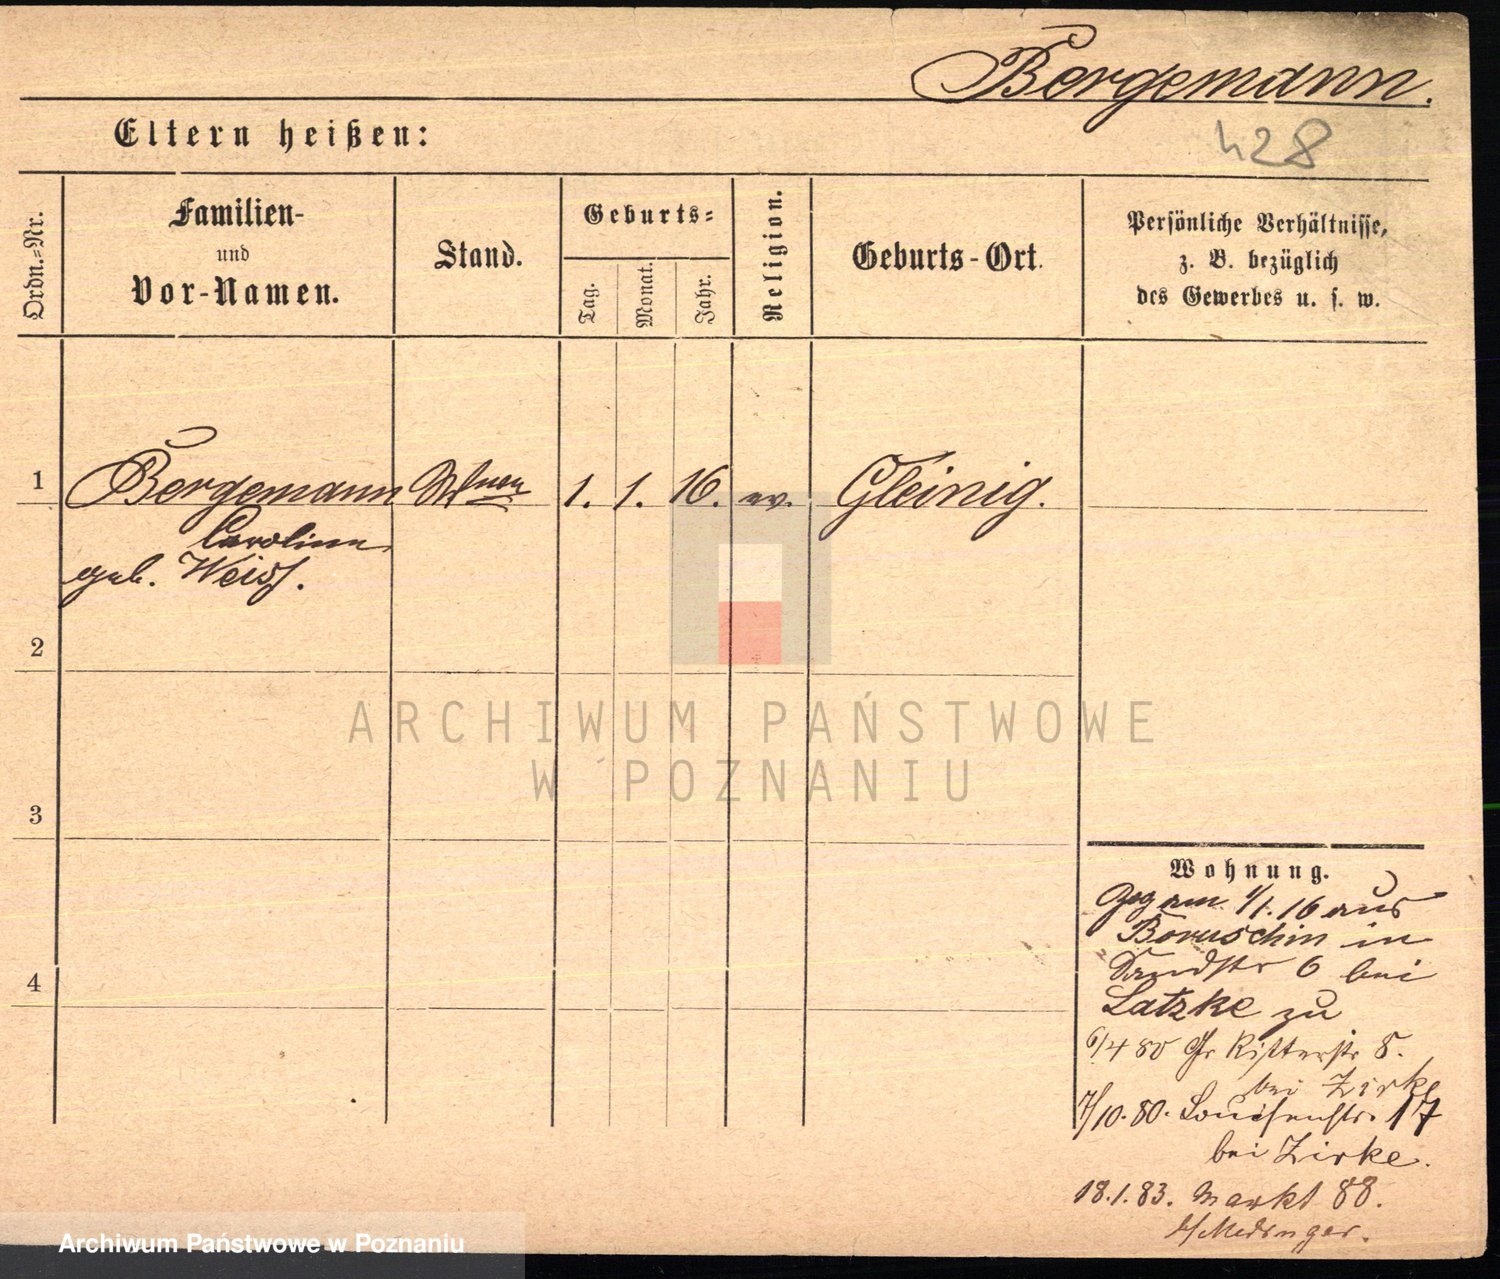 Bergemann.
428
Eltern heißen:
Ordn.=Nr.
Familien-
und
Vor-Namen.
Stand.
Geburts=
Tag.
Monat.
Jahr.
Religion.
Geburts-Ort.
Persönliche Verhältnisse,
z. B. bezüglich
des Gewerbes u. s. w.
1
Bergemann
1. 1. 16. ev. Gleinig.
Caroline
geb. Weiss.
2
ARCHIWUM PAŃSTWOWE
W POZNANIU
3
Wohnung.
am 1/1. 16 aus
Boruschin in
Sandstr 6 bei
4
Latzke zu
6/4 80 Gr Ritterstr 8.
bei Zirke
7/10. 80. Louisenstr. 17
bei Zirke.
18.1.83. Markt 88.
Archiwum Państwowe w Poznaniu